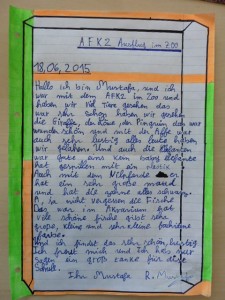 AFK2 Ausflug im Zoo
18,06,2015
Hallo ich bin Mustafa, und ich
war mit dem AFK2 im Zoo und
haben wir viel Tiere gesehen das
war sehr schön haben wir gesehen
die Giraffen, der Löwe, der Pinguin, das war
wunderschön und mit der Affe war
auch sehr lustig alles Leute haben
wir gelachen. Und auch die Elefanten
war gute eins kein baby elefante
hat gespielen mit ein
Auch mit dem Nilpferde er
hat ein sehr große mund
und hat die zähne alles schwarz
A, ja nicht vergessen die Fische
Das war im Akvarium hat
viele schöne fische gibst sehr
große, kleine und sehr kleine
farbe.
Und ich findet das sehr schön, lustig
Ich freut mich und Ich
sagen ein groß danke für die
Schule.
Ihr Mustafa